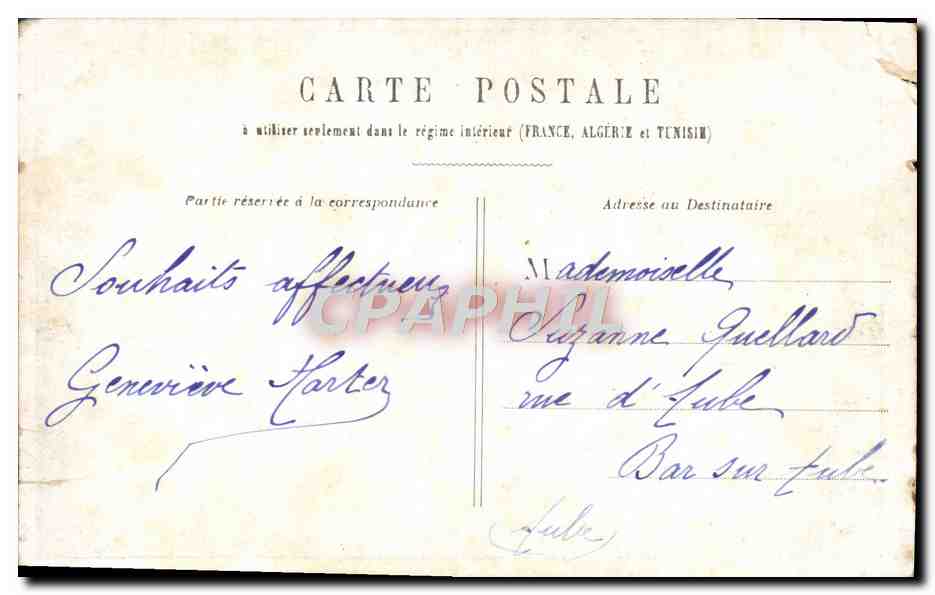 CARTE POSTALE
à utiliser seulement dans le régime intérieur (FRANCE, ALGÉRIE et TUNISIE)
Partie réservée à la correspondance
Adresse au Destinataire
Souhaits affectueux
Geneviève Harter
Mademoiselle
Suzanne Quellard
rue d'Aube
Bar sur Aube
(Aube)
CPAPHIL